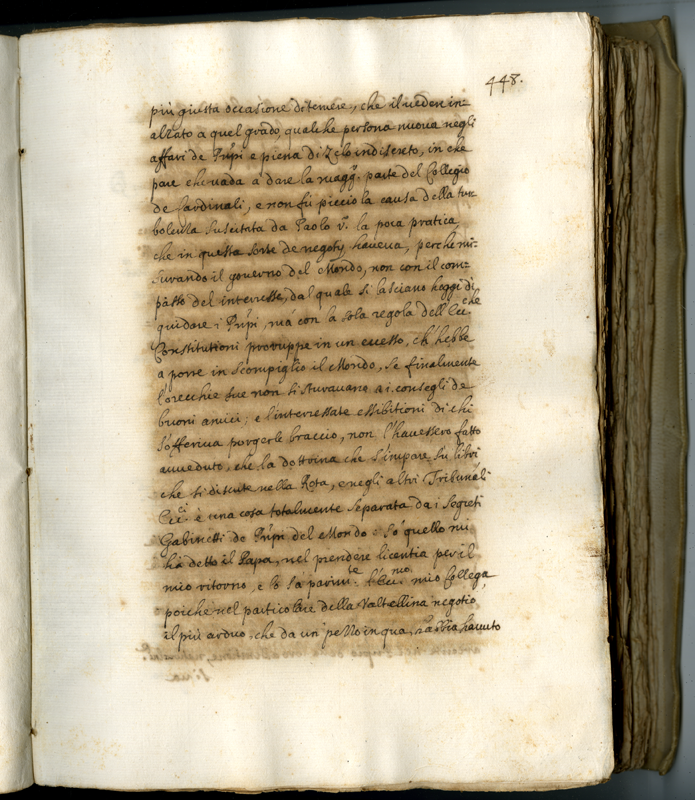 448.
più giusta occasione di temere, che il ueder in=
alzato à quel grado qualche persona nuoua negli
affari de Prñpi e piena di Zelo indiscreto, in che
pare che uada a dare la magg.r parte del Collegio
de Cardinali, e non fù picciola causa della tur=
bolenza suscitata da Paolo V.º la poca pratica,
che in questa sorte de negotij haueua, perche mi=
surando il gouerno del Mondo, non con il com=
passo del interesse, dal quale si lasciano hoggi dì
guidare i Prñpi, mà con la sola regola dell'Ecc.che
Constitutioni proruppe in un eccesso, ch'hebbe
a porre in scompiglio il Mondo, se finalmente
l'orecchie sue non si sturauano a i consegli de
buoni amici; e l'interessate essibitioni di chi
s'offeriua porgerle braccio, non l'hauessero fatto
auueduto, che la dottrina che s'impara su libri
che si discute nella Rota, e negli altri Tribunali
Ecc.ci è una cosa totalmente separata da i Segreti
Gabinetti de Prñpi del Mondo e sò quello mi
hà detto il Papa, nel prendere licentia per il
mio ritorno, e lo sà parim.te l'Ecc.mo mio Collega,
poiche nel particolare della Valtellina negotio
il più arduo, che da un pezzo in quà, s'abbia hauuto